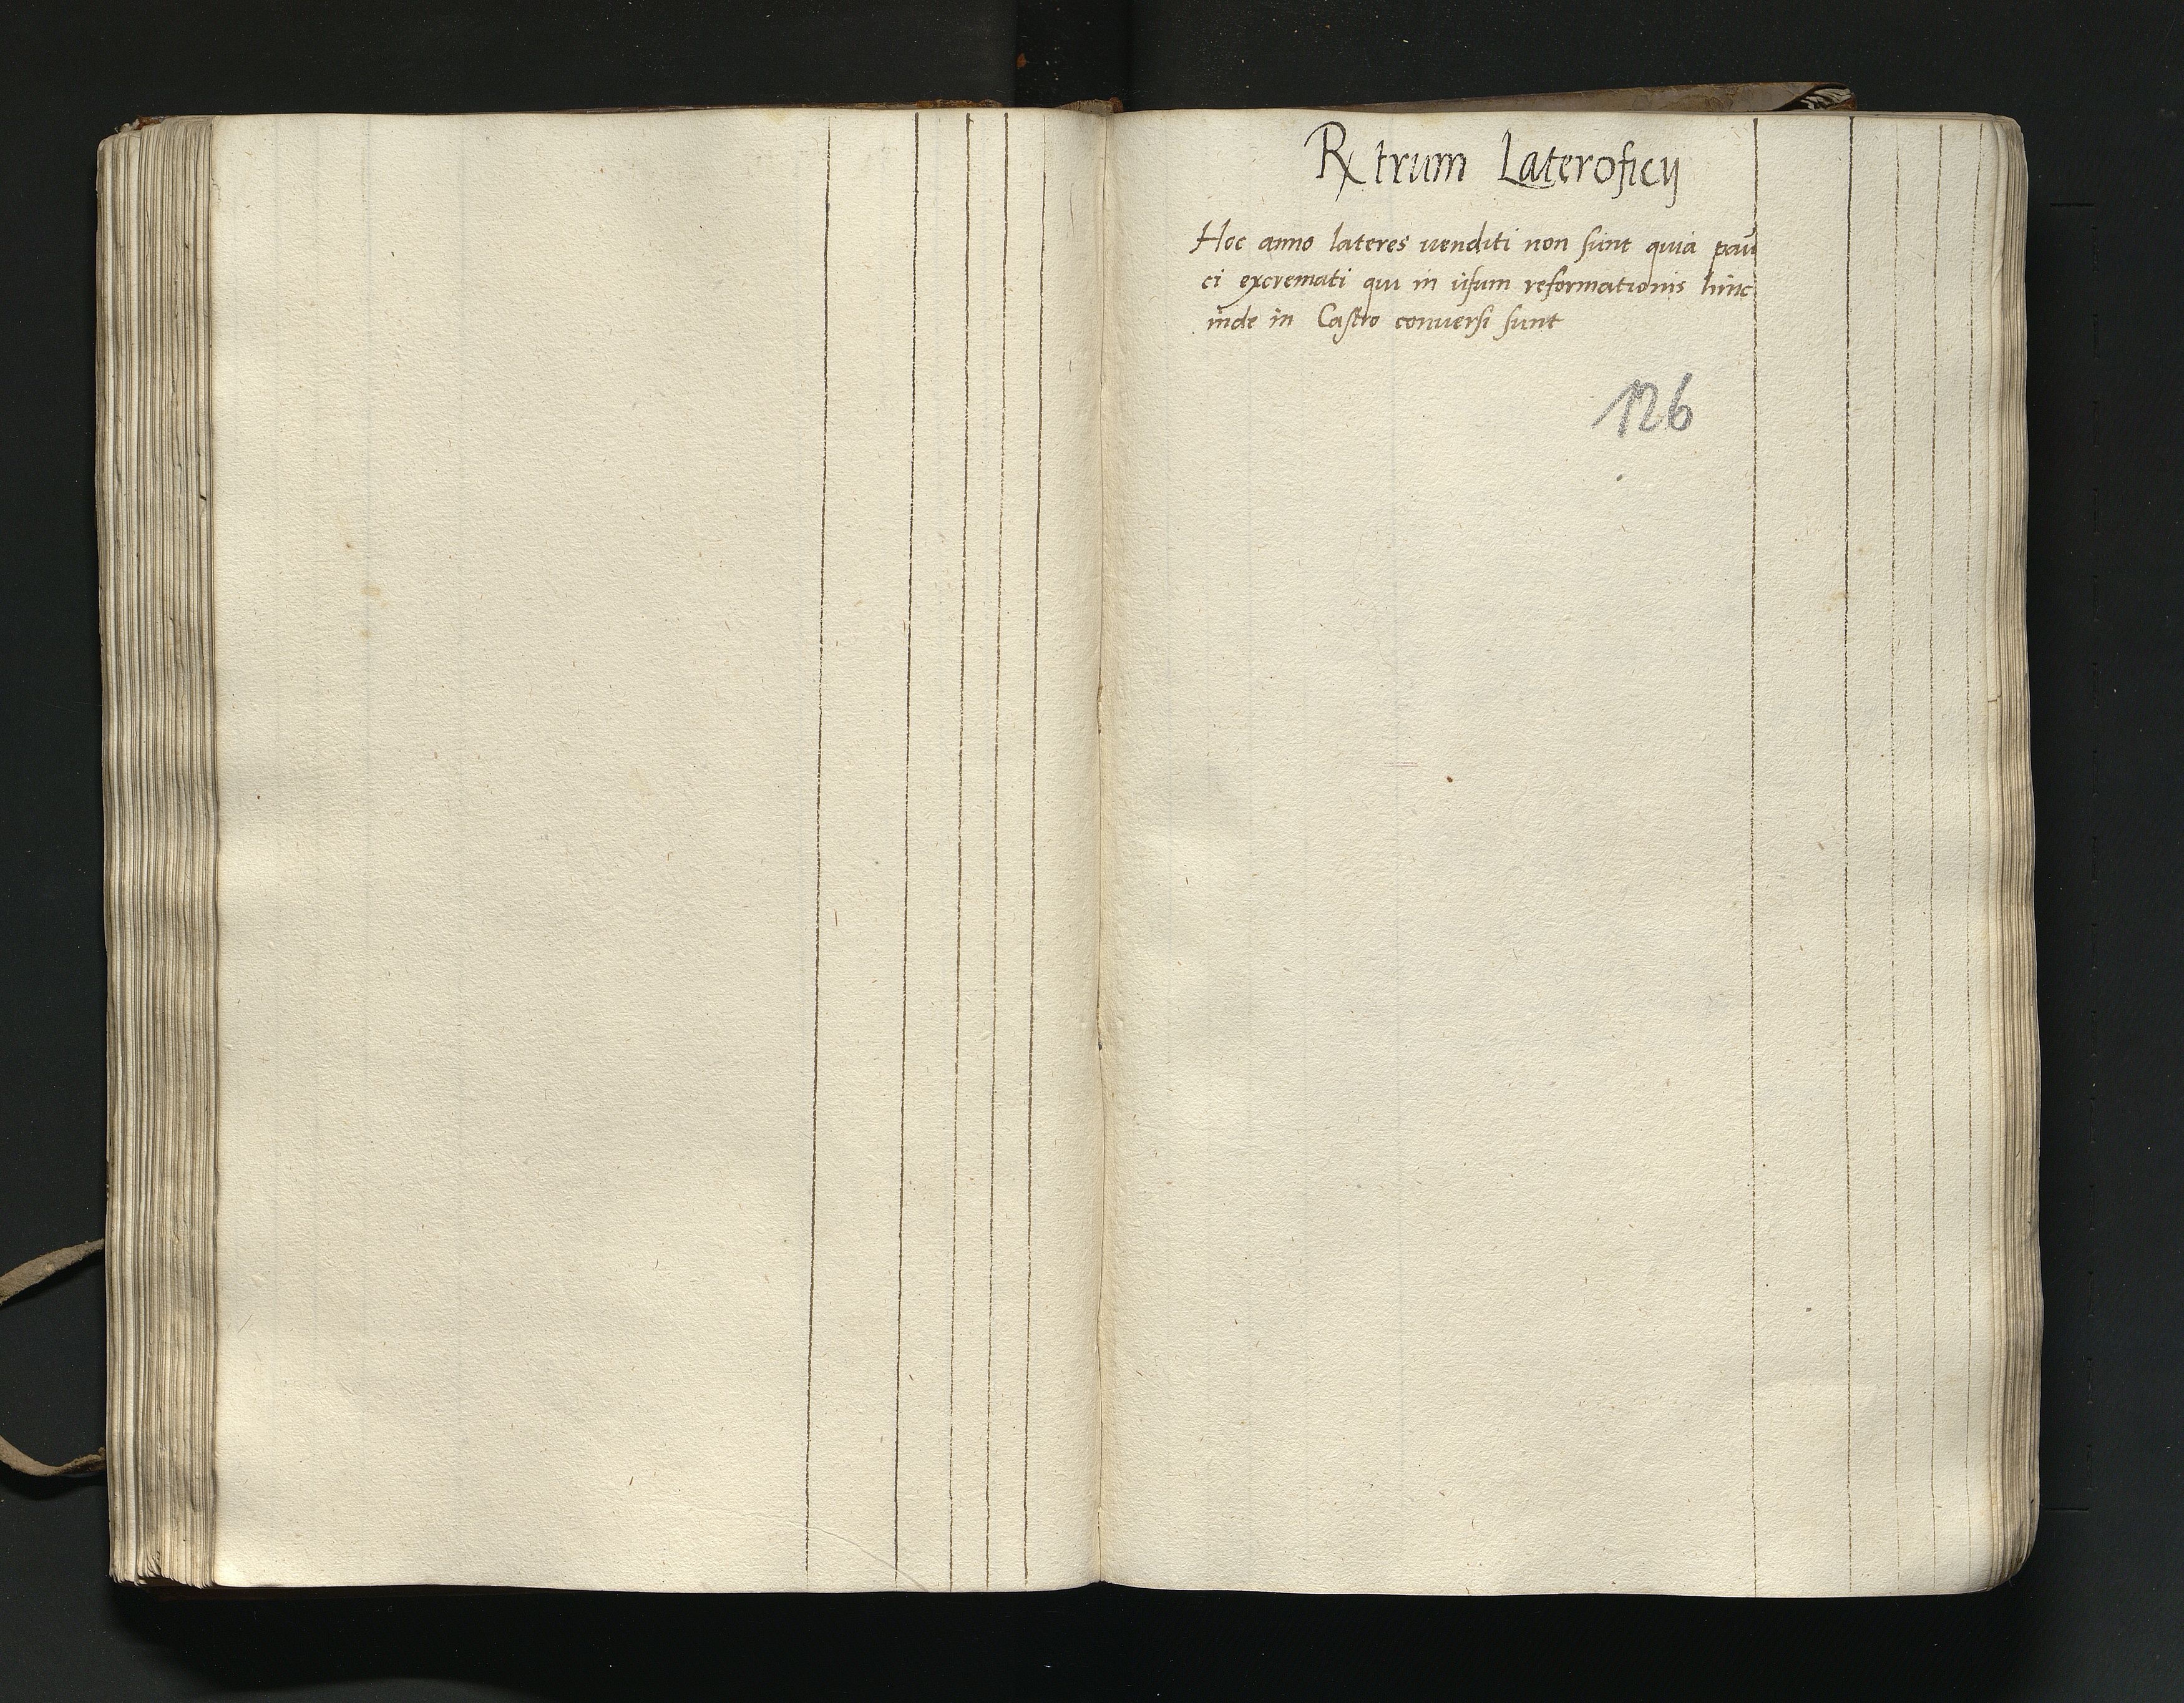 ℞ trum Lateroficij
Hoc anno lateres uenditi non sunt quia pau
ci excremati qui in usum reformationis hinc
inde in Castro conuersi sunt
126